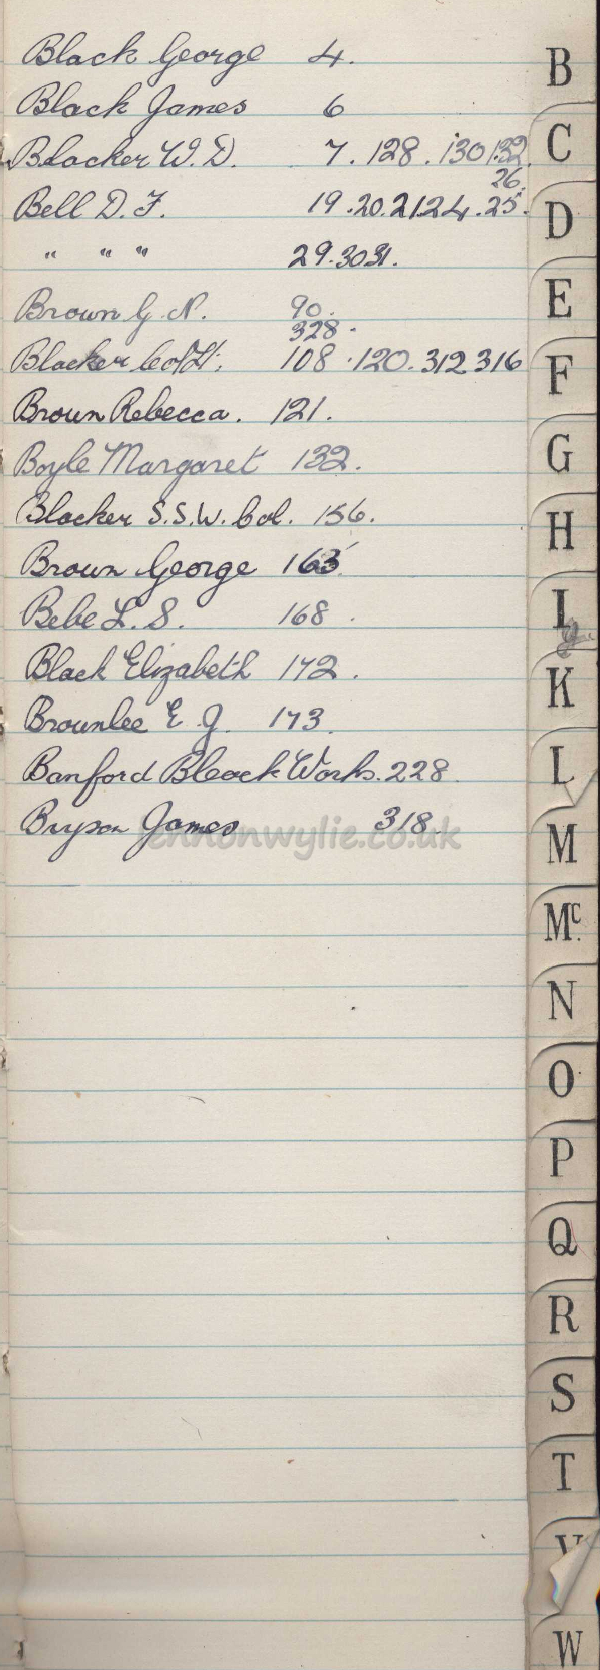 Black George 4.
Black James 6
Blacker W. D. 7. 128. 130 132
26.
Bell D. F. 19. 20. 21 24. 25.
" " " 29. 30 31.
Brown G. N. 90.
328.
Blacker Col. 108. 120. 312 316
Brown Rebecca. 121.
Boyle Margaret 132.
Blacker S. S. W. Col. 156.
Brown George 163
Bebe L. S. 168.
Black Elizabeth 172.
Brownlee E. J. 173
Banford Bleach Works. 228
Bryson James 318.
lennonwylie.co.uk
B
C
D
E
F
G
H
I
K
L
M
Mc.
N
O
P
Q
R
S
T
V
W